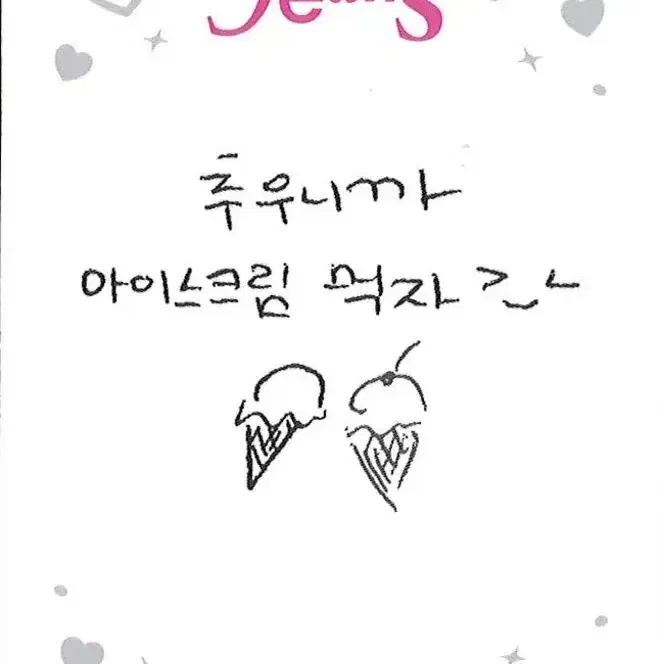 Jeans
추우니까
아이스크림 먹자 >‿<